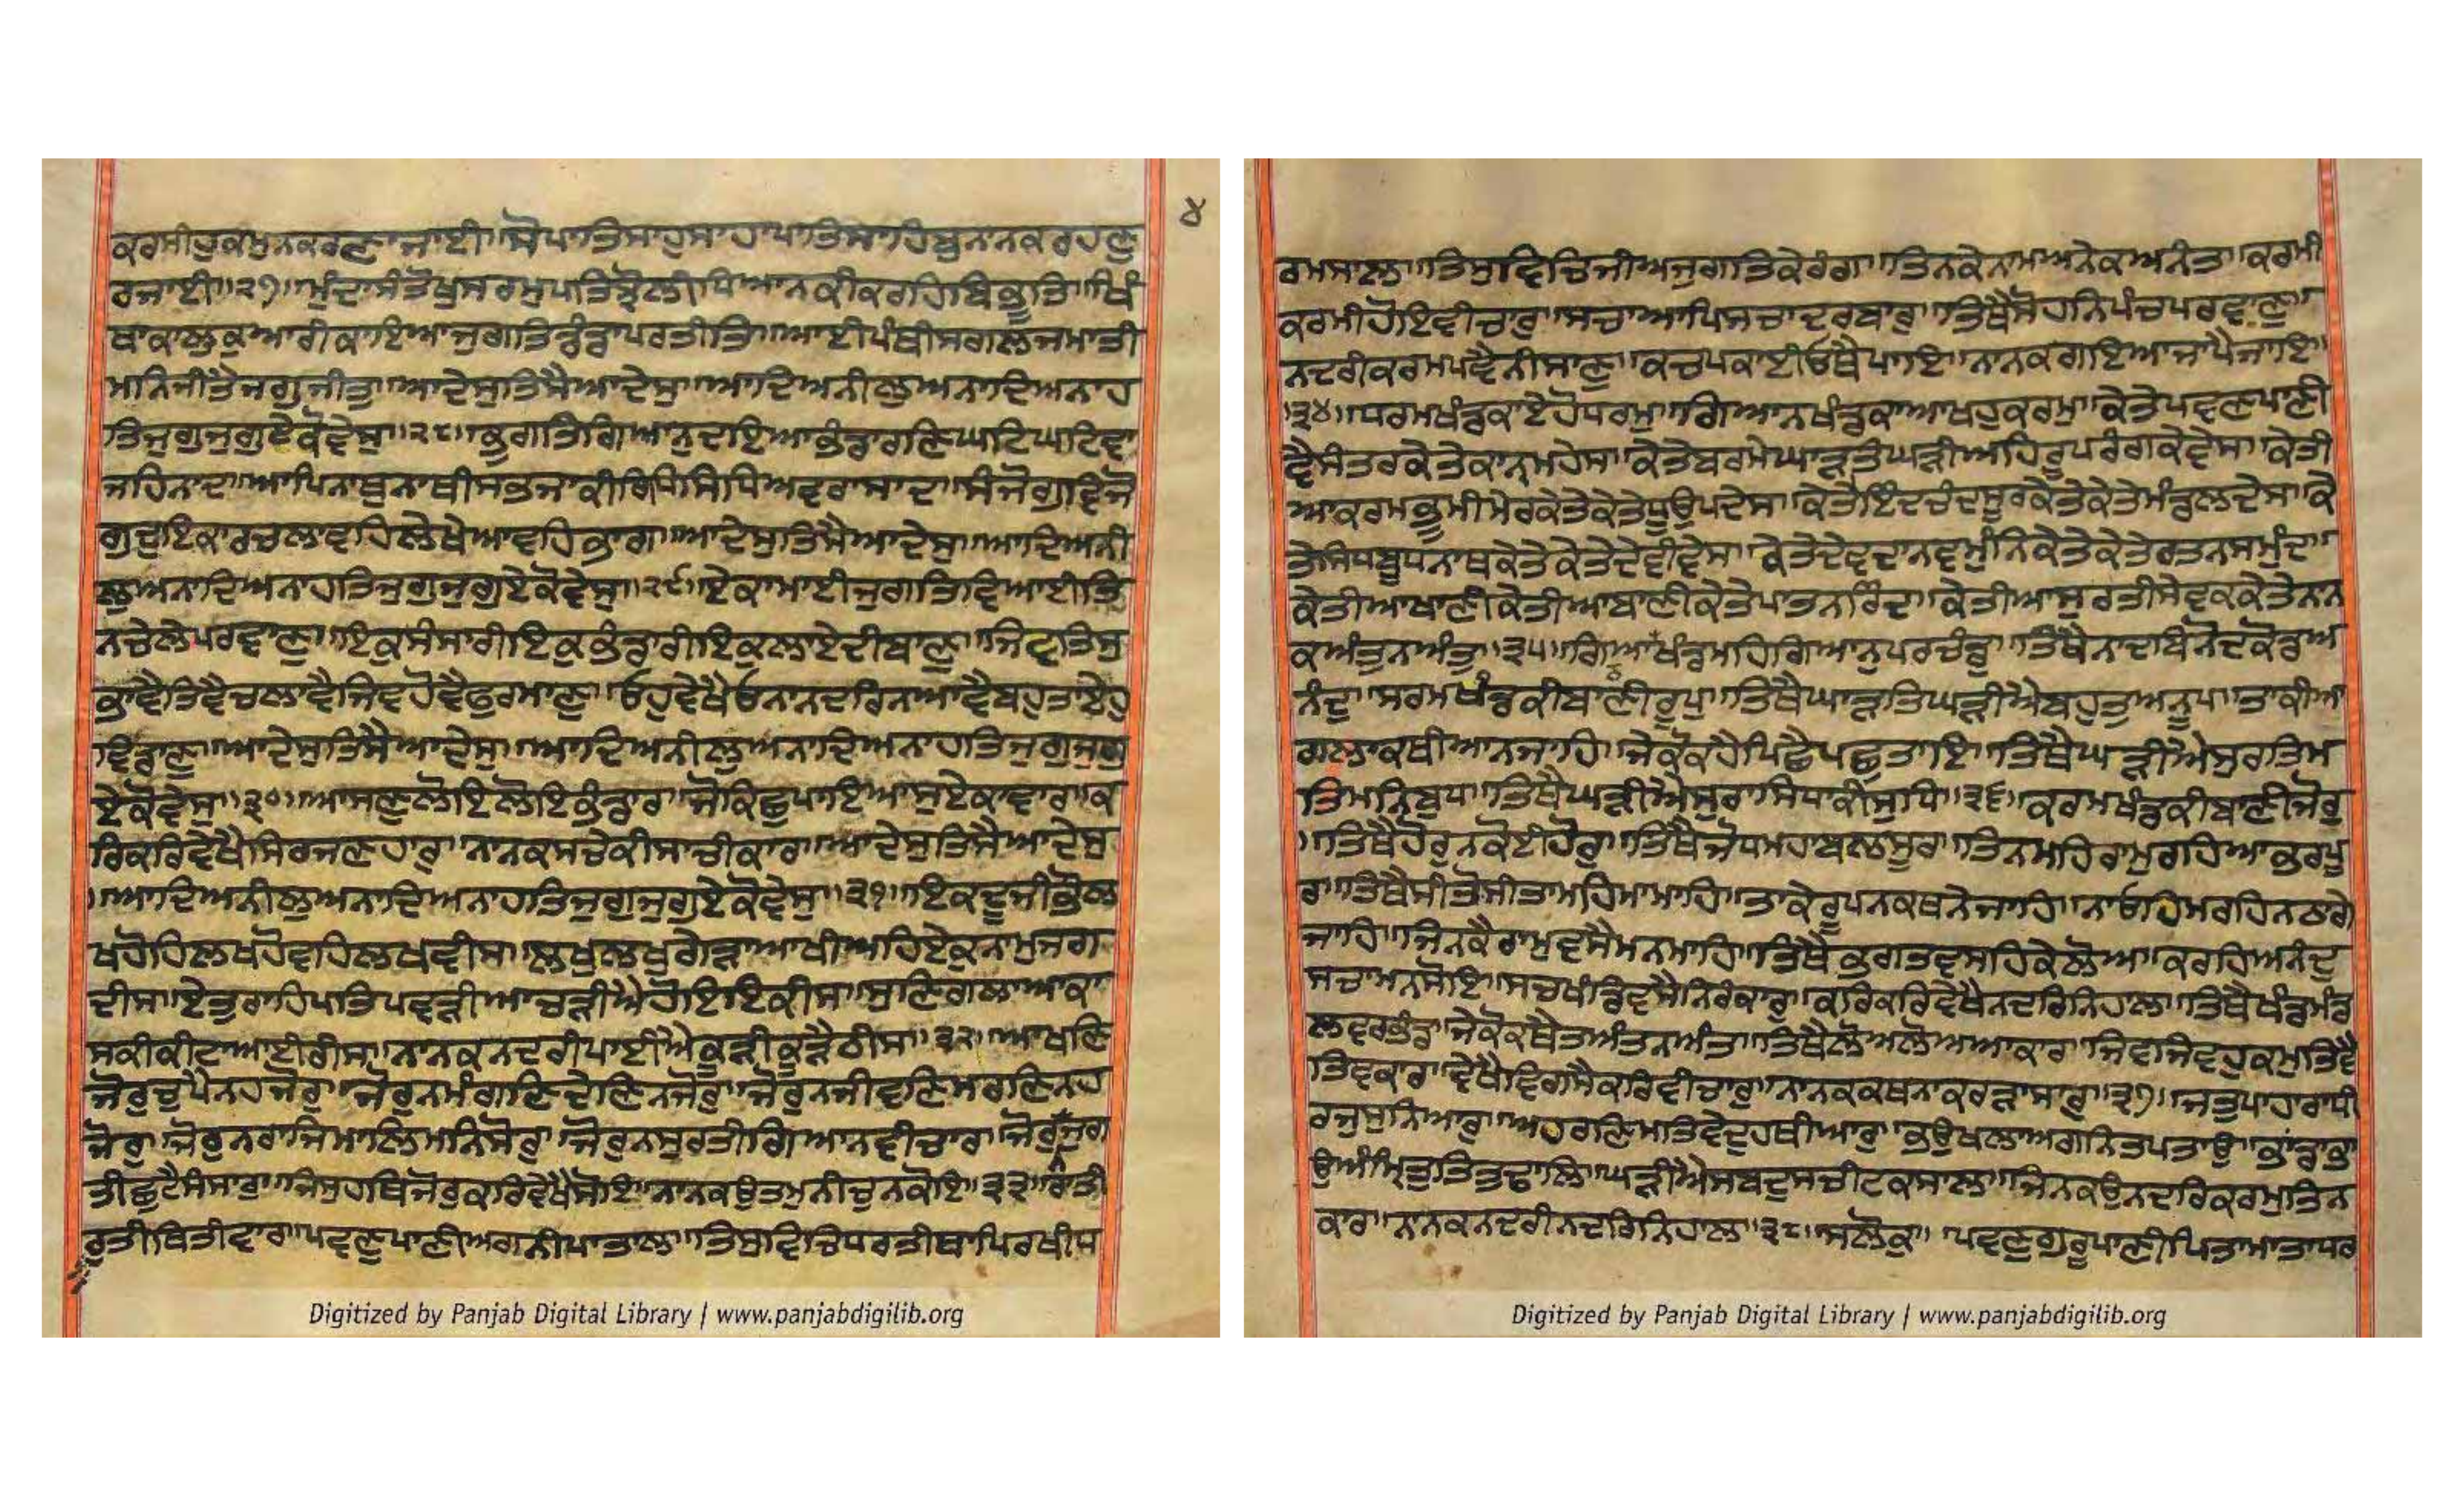 ੪
ਕਰਸੀਹੁਕਮੁਨਕਰਣਾਜਾਈ॥ਸੋਪਾਤਿਸਾਹੁਸਾਹਾਪਾਤਿਸਾਹਿਬੁਨਾਨਕਰਹਣੁ
ਰਜਾਈ॥੨੭॥ਮੁੰਦਾਸੰਤੋਖੁਸਰਮੁਪਤਿਝੋਲੀਧਿਆਨਕੀਕਰਹਿਬਿਭੂਤਿ॥ਖਿੰ
ਥਾਕਾਲੁਕੁਆਰੀਕਾਇਆਜੁਗਤਿਡੰਡਾਪਰਤੀਤਿ॥ਆਈਪੰਥੀਸਗਲਜਮਾਤੀ
ਮਨਿਜੀਤੈਜਗੁਜੀਤੁ॥ਆਦੇਸੁਤਿਸੈਆਦੇਸੁ॥ਆਦਿਅਨੀਲੁਅਨਾਦਿਅਨਾਹ
ਤਿਜੁਗੁਜੁਗੁਏਕੋਵੇਸੁ॥੨੮॥ਭੁਗਤਿਗਿਆਨੁਦਇਆਭੰਡਾਰਣਿਘਟਿਘਟਿਵਾ
ਜਹਿਨਾਦ॥ਆਪਿਨਾਥੁਨਾਥੀਸਭਜਾਕੀਰਿਧਿਸਿਧਿਅਵਰਾਸਾਦ॥ਸੰਜੋਗੁਵਿਜੋ
ਗੁਦੁਇਕਾਰਚਲਾਵਹਿਲੇਖੇਆਵਹਿਭਾਗ॥ਆਦੇਸੁਤਿਸੈਆਦੇਸੁ॥ਆਦਿਅਨੀ
ਲੁਅਨਾਦਿਅਨਾਹਤਿਜੁਗੁਜੁਗੁਏਕੋਵੇਸੁ॥੨੯॥ਏਕਾਮਾਈਜੁਗਤਿਵਿਆਈਤਿ
ਨਚੇਲੇਪਰਵਾਣੁ॥ਇਕੁਸੰਸਾਰੀਇਕੁਭੰਡਾਰੀਇਕੁਲਾਏਦੀਬਾਣੁ॥ਜਿਵਤਿਸੁ
ਭਾਵੈਤਿਵੈਚਲਾਵੈਜਿਵਹੋਵੈਫੁਰਮਾਣੁ॥ਓਹੁਵੇਖੈਓਨਾਨਦਰਿਨਆਵੈਬਹੁਤਾਏਹੁ
ਵਿਡਾਣੁ॥ਆਦੇਸੁਤਿਸੈਆਦੇਸੁ॥ਆਦਿਅਨੀਲੁਅਨਾਦਿਅਨਾਹਤਿਜੁਗੁਜੁਗੁ
ਏਕੋਵੇਸੁ॥੩੦॥ਆਸਣੁਲੋਇਲੋਇਭੰਡਾਰ॥ਜੋਕਿਛੁਪਾਇਆਸੁਏਕਾਵਾਰ॥ਕ
ਰਿਕਰਿਵੇਖੈਸਿਰਜਣਹਾਰੁ॥ਨਾਨਕਸਚੇਕੀਸਾਚੀਕਾਰ॥ਆਦੇਸੁਤਿਸੈਆਦੇਸੁ
॥ਆਦਿਅਨੀਲੁਅਨਾਦਿਅਨਾਹਤਿਜੁਗੁਜੁਗੁਏਕੋਵੇਸੁ॥੩੧॥ਇਕਦੂਜੀਭੌਲ
ਖਹੋਹਿਲਖਹੋਵਹਿਲਖਵੀਸ॥ਲਖੁਲਖੁਗੇੜਾਆਖੀਅਹਿਏਕੁਨਾਮੁਜਗ
ਦੀਸ॥ਏਤੁਰਾਹਿਪਤਿਪਵੜੀਆਚੜੀਐਹੋਇਇਕੀਸ॥ਸੁਣਿਗਲਾਆਕਾ
ਸਕੀਕੀਟਾਆਈਰੀਸ॥ਨਾਨਕਨਦਰੀਪਾਈਐਕੂੜੀਕੂੜੈਠੀਸ॥੩੨॥ਆਖਣਿ
ਜੋਰੁਚੁਪੈਨਹਜੋਰੁ॥ਜੋਰੁਨਮੰਗਣਿਦੇਣਿਨਜੋਰੁ॥ਜੋਰੁਨਜੀਵਣਿਮਰਣਿਨਹ
ਜੋਰੁ॥ਜੋਰੁਨਰਾਜਿਮਾਲਿਮਨਿਸੋਰੁ॥ਜੋਰੁਨਸੁਰਤੀਗਿਆਨਵੀਚਾਰ॥ਜੋਰੁਨਜੁਗ
ਤੀਛੁਟੈਸੰਸਾਰੁ॥ਜਿਸੁਹਥਿਜੋਰੁਕਰਿਵੇਖੈਸੋਇ॥ਨਾਨਕਉਤਮੁਨੀਚੁਨਕੋਇ॥੩੩॥ਰਾਤੀ
ਰੁਤੀਥਿਤੀਵਾਰ॥ਪਵਣੁਪਾਣੀਅਗਨੀਪਾਤਾਲ॥ਤਿਸੁਵਿਚਿਧਰਤੀਥਾਪਿਰਖੀਧ
ਰਮਸਾਲ॥ਤਿਸੁਵਿਚਿਜੀਅਜੁਗਤਿਕੇਰੰਗ॥ਤਿਨਕੇਨਾਮਅਨੇਕਅਨੰਤ॥ਕਰਮੀ
ਕਰਮੀਹੋਇਵੀਚਾਰੁ॥ਸਚਾਆਪਿਸਚਾਦਰਬਾਰੁ॥ਤਿਥੈਸੋਹਨਿਪੰਚਪਰਵਾਣੁ॥
ਨਦਰੀਕਰਮਪਵੈਨੀਸਾਣੁ॥ਕਚਪਕਾਈਓਥੈਪਾਇ॥ਨਾਨਕਗਇਆਜਾਪੈਜਾਇ॥
॥੩੪॥ਧਰਮਖੰਡਕਾਏਹੋਧਰਮੁ॥ਗਿਆਨਖੰਡਕਾਆਖਹੁਕਰਮੁ॥ਕੇਤੇਪਵਣਪਾਣੀ
ਵੈਸੰਤਰਕੇਤੇਕਾਨ੍ਹਮਹੇਸ॥ਕੇਤੇਬਰਮੇਘਾੜਤਿਘੜੀਅਹਿਰੂਪਰੰਗਕੇਵੇਸ॥ਕੇਤੀ
ਆਕਰਮਭੂਮੀਮੇਰਕੇਤੇਕੇਤੇਧੂਉਪਦੇਸ॥ਕੇਤੇਇੰਦਚੰਦਸੂਰਕੇਤੇਕੇਤੇਮੰਡਲਦੇਸ॥ਕੇ
ਤੇਸਿਧਬੁਧਨਾਥਕੇਤੇਕੇਤੇਦੇਵੀਵੇਸ॥ਕੇਤੇਦੇਵਦਾਨਵਮੁਨਿਕੇਤੇਕੇਤੇਰਤਨਸਮੁੰਦ॥
ਕੇਤੀਆਖਾਣੀਕੇਤੀਆਬਾਣੀਕੇਤੇਪਾਤਨਰਿੰਦ॥ਕੇਤੀਆਸੁਰਤੀਸੇਵਕਕੇਤੇਨਾਨ
ਕਅੰਤੁਨਅੰਤੁ॥੩੫॥ਗਿਆਨਖੰਡਮਹਿਗਿਆਨੁਪਰਚੰਡੁ॥ਤਿਥੈਨਾਦਬਿਨੋਦਕੋਡਅ
ਨੰਦੁ॥ਸਰਮਖੰਡਕੀਬਾਣੀਰੂਪੁ॥ਤਿਥੈਘਾੜਤਿਘੜੀਐਬਹੁਤੁਅਨੂਪੁ॥ਤਾਕੀਆ
ਗਲਾਕਥੀਆਨਜਾਹਿ॥ਜੇਕੋਕਹੈਪਿਛੈਪਛੁਤਾਇ॥ਤਿਥੈਘੜੀਐਸੁਰਤਿਮ
ਤਿਮਨਿਬੁਧਿ॥ਤਿਥੈਘੜੀਐਸੁਰਾਸਿਧਾਕੀਸੁਧਿ॥੩੬॥ਕਰਮਖੰਡਕੀਬਾਣੀਜੋਰੁ
॥ਤਿਥੈਹੋਰੁਨਕੋਈਹੋਰੁ॥ਤਿਥੈਜੋਧਮਹਾਬਲਸੂਰ॥ਤਿਨਮਹਿਰਾਮੁਰਹਿਆਭਰਪੂ
ਰ॥ਤਿਥੈਸੀਤੋਸੀਤਾਮਹਿਮਾਮਾਹਿ॥ਤਾਕੇਰੂਪਨਕਥਨੇਜਾਹਿ॥ਨਾਓਹਿਮਰਹਿਨਠਾਗੇ
ਜਾਹਿ॥ਜਿਨਕੈਰਾਮੁਵਸੈਮਨਮਾਹਿ॥ਤਿਥੈਭਗਤਵਸਹਿਕੇਲੋਅ॥ਕਰਹਿਅਨੰਦੁ
ਸਚਾਮਨਸੋਇ॥ਸਚਖੰਡਿਵਸੈਨਿਰੰਕਾਰੁ॥ਕਰਿਕਰਿਵੇਖੈਨਦਰਿਨਿਹਾਲ॥ਤਿਥੈਖੰਡਮੰਡ
ਲਵਰਭੰਡ॥ਜੇਕੋਕਥੈਤਅੰਤਨਅੰਤ॥ਤਿਥੈਲੋਅਲੋਅਆਕਾਰ॥ਜਿਵਜਿਵਹੁਕਮੁਤਿਵੈ
ਤਿਵਕਾਰ॥ਵੇਖੈਵਿਗਸੈਕਰਿਵੀਚਾਰੁ॥ਨਾਨਕਕਥਨਾਕਰੜਾਸਾਰੁ॥੩੭॥ਜਤੁਪਾਹਾਰਾਧੀ
ਰਜੁਸੁਨਿਆਰੁ॥ਅਹਰਣਿਮਤਿਵੇਦੁਹਥੀਆਰੁ॥ਭਉਖਲਾਅਗਨਿਤਪਤਾਉ॥ਭਾਂਡਾਭਾ
ਉਅੰਮ੍ਰਿਤੁਤਿਤੁਢਾਲਿ॥ਘੜੀਐਸਬਦੁਸਚੀਟਕਸਾਲ॥ਜਿਨਕਉਨਦਰਿਕਰਮੁਤਿਨ
ਕਾਰ॥ਨਾਨਕਨਦਰੀਨਦਰਿਨਿਹਾਲ॥੩੮॥ਸਲੋਕੁ॥ਪਵਣੁਗੁਰੂਪਾਣੀਪਿਤਾਮਾਤਾਧਰ
Digitized by Panjab Digital Library | www.panjabdigilib.org
Digitized by Panjab Digital Library | www.panjabdigilib.org